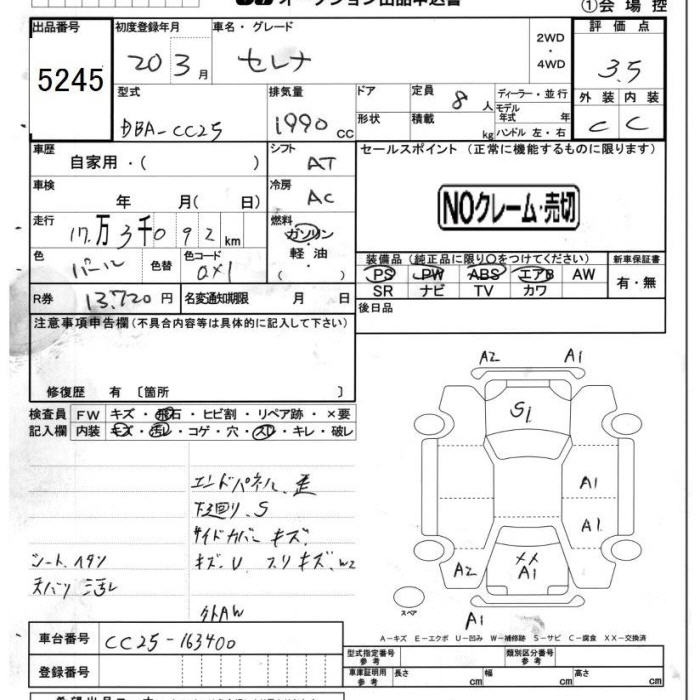 オークション出品申込書
①会場控
出品番号
5245
初度登録年月
20 3月
車名・グレード
セレナ
2WD
・
4WD
評価点
3.5
型式
DBA-CC25
排気量
1990 cc
ドア
形状
定員
8 人
積載
kg
ディーラー・並行
モデル年式 年
ハンドル 左・右
外装 内装
C C
車歴
自家用・( )
シフト
AT
セールスポイント (正常に機能するものに限ります)
NOクレーム・売切
車検
年 月( 日)
冷房
AC
走行
17万3千092km
燃料
ガソリン
・
軽油
( )
色
パール
色替
色コード
QX1
装備品 (純正品に限り○をつけてください)
PS PW ABS エアB AW
SR ナビ TV カワ
新車保証書
有・無
R券
13,720円
名変通知期限 月 日
後日品
注意事項申告欄(不具合内容等は具体的に記入して下さい)
修復歴 有 〔箇所 〕
検査員記入欄
FW キズ・飛石・ヒビ割・リペア跡・×要
内装 キズ・汚レ・コゲ・穴・スレ・キレ・破レ
エンドパネル、歪
下廻り、S
サイドカバー キズ
キズ、U スリキズ、W2
シート、ヘタリ
天バリ 汚レ
外AW
A2
A1
S1
A1
A1
A2
XX
A1
A1
スペア
A-キズ E-エクボ U-凹み W-補修跡 S-サビ C-腐食 XX-交換済
車台番号
CC25-163400
登録番号
型式指定番号 参考
類別区分番号 参考
車庫証明用 参考
長さ cm
幅 cm
高さ cm